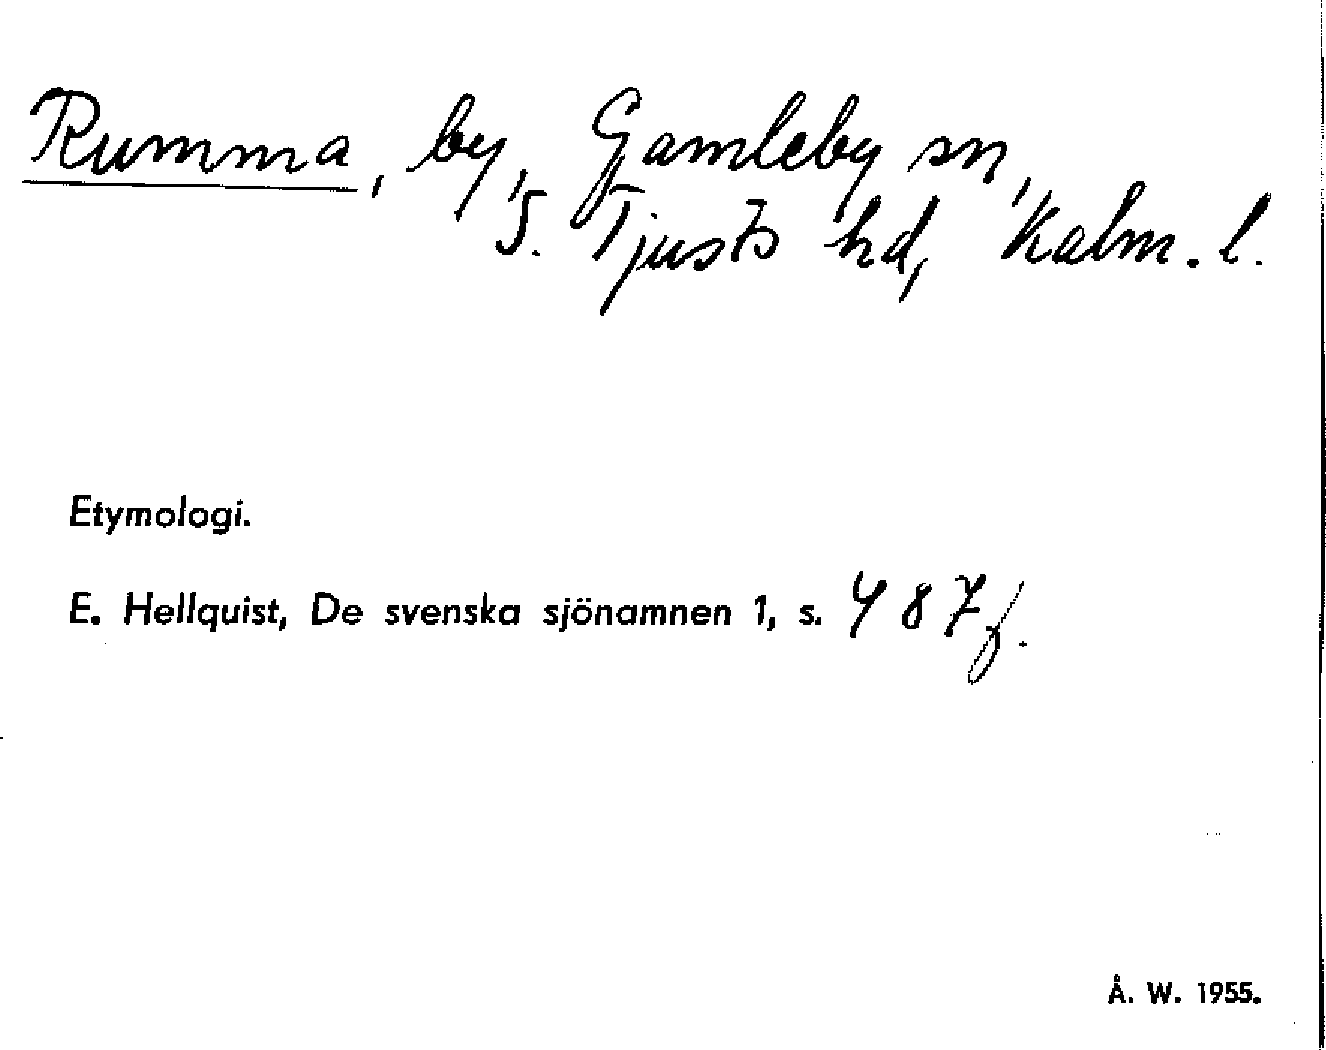 Rumma, by, Gamleby sn,
S. Tjusts hd, Kalm. l.
Etymologi.
E. Hellquist, De svenska sjönamnen 1, s. 487 f.
Å. W. 1955.